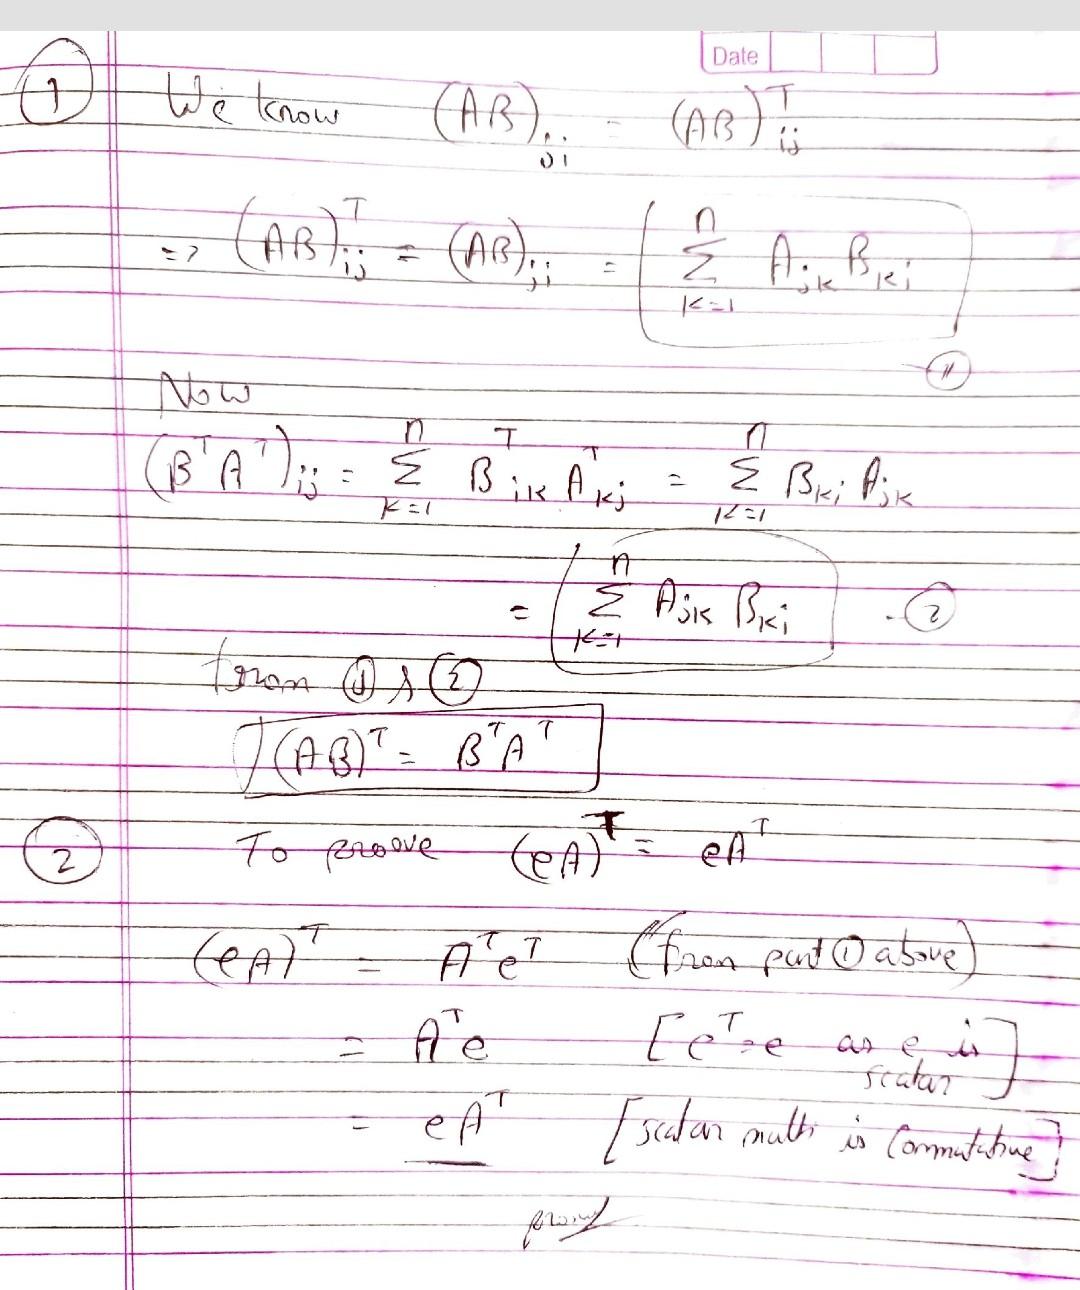 Date
① We know (AB)ji = (AB)ᵀij
=> (AB)ᵀij = (AB)ji = n Σ k=1 Ajk Bki
①
Now
(BᵀAᵀ)ij = n Σ k=1 Bᵀik Aᵀkj = n Σ k=1 Bki Ajk
= n Σ k=1 Ajk Bki - ②
from ① & ②
(AB)ᵀ = BᵀAᵀ
② To proove (eA)ᵀ = eAᵀ
(eA)ᵀ = Aᵀeᵀ (from part ① above)
= Aᵀe [eᵀ=e as e is
scalar]
= eAᵀ [scalar multi is Commutative]